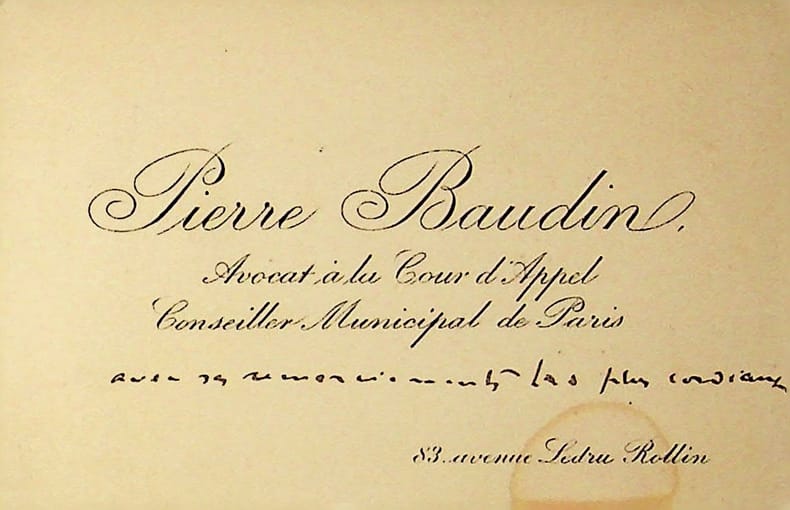 Pierre Baudin.
Avocat à la Cour d'Appel
Conseiller Municipal de Paris
avec ses remerciements les plus cordiaux
83. avenue Ledru Rollin